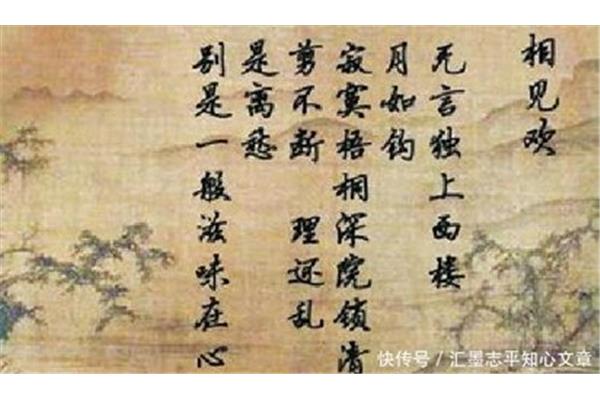 相见欢
无言独上西楼
月如钩
寂寞梧桐深院锁清
剪不断 理还乱
是离愁
别是一般滋味在心
快传号 / 汇墨志平知心文章